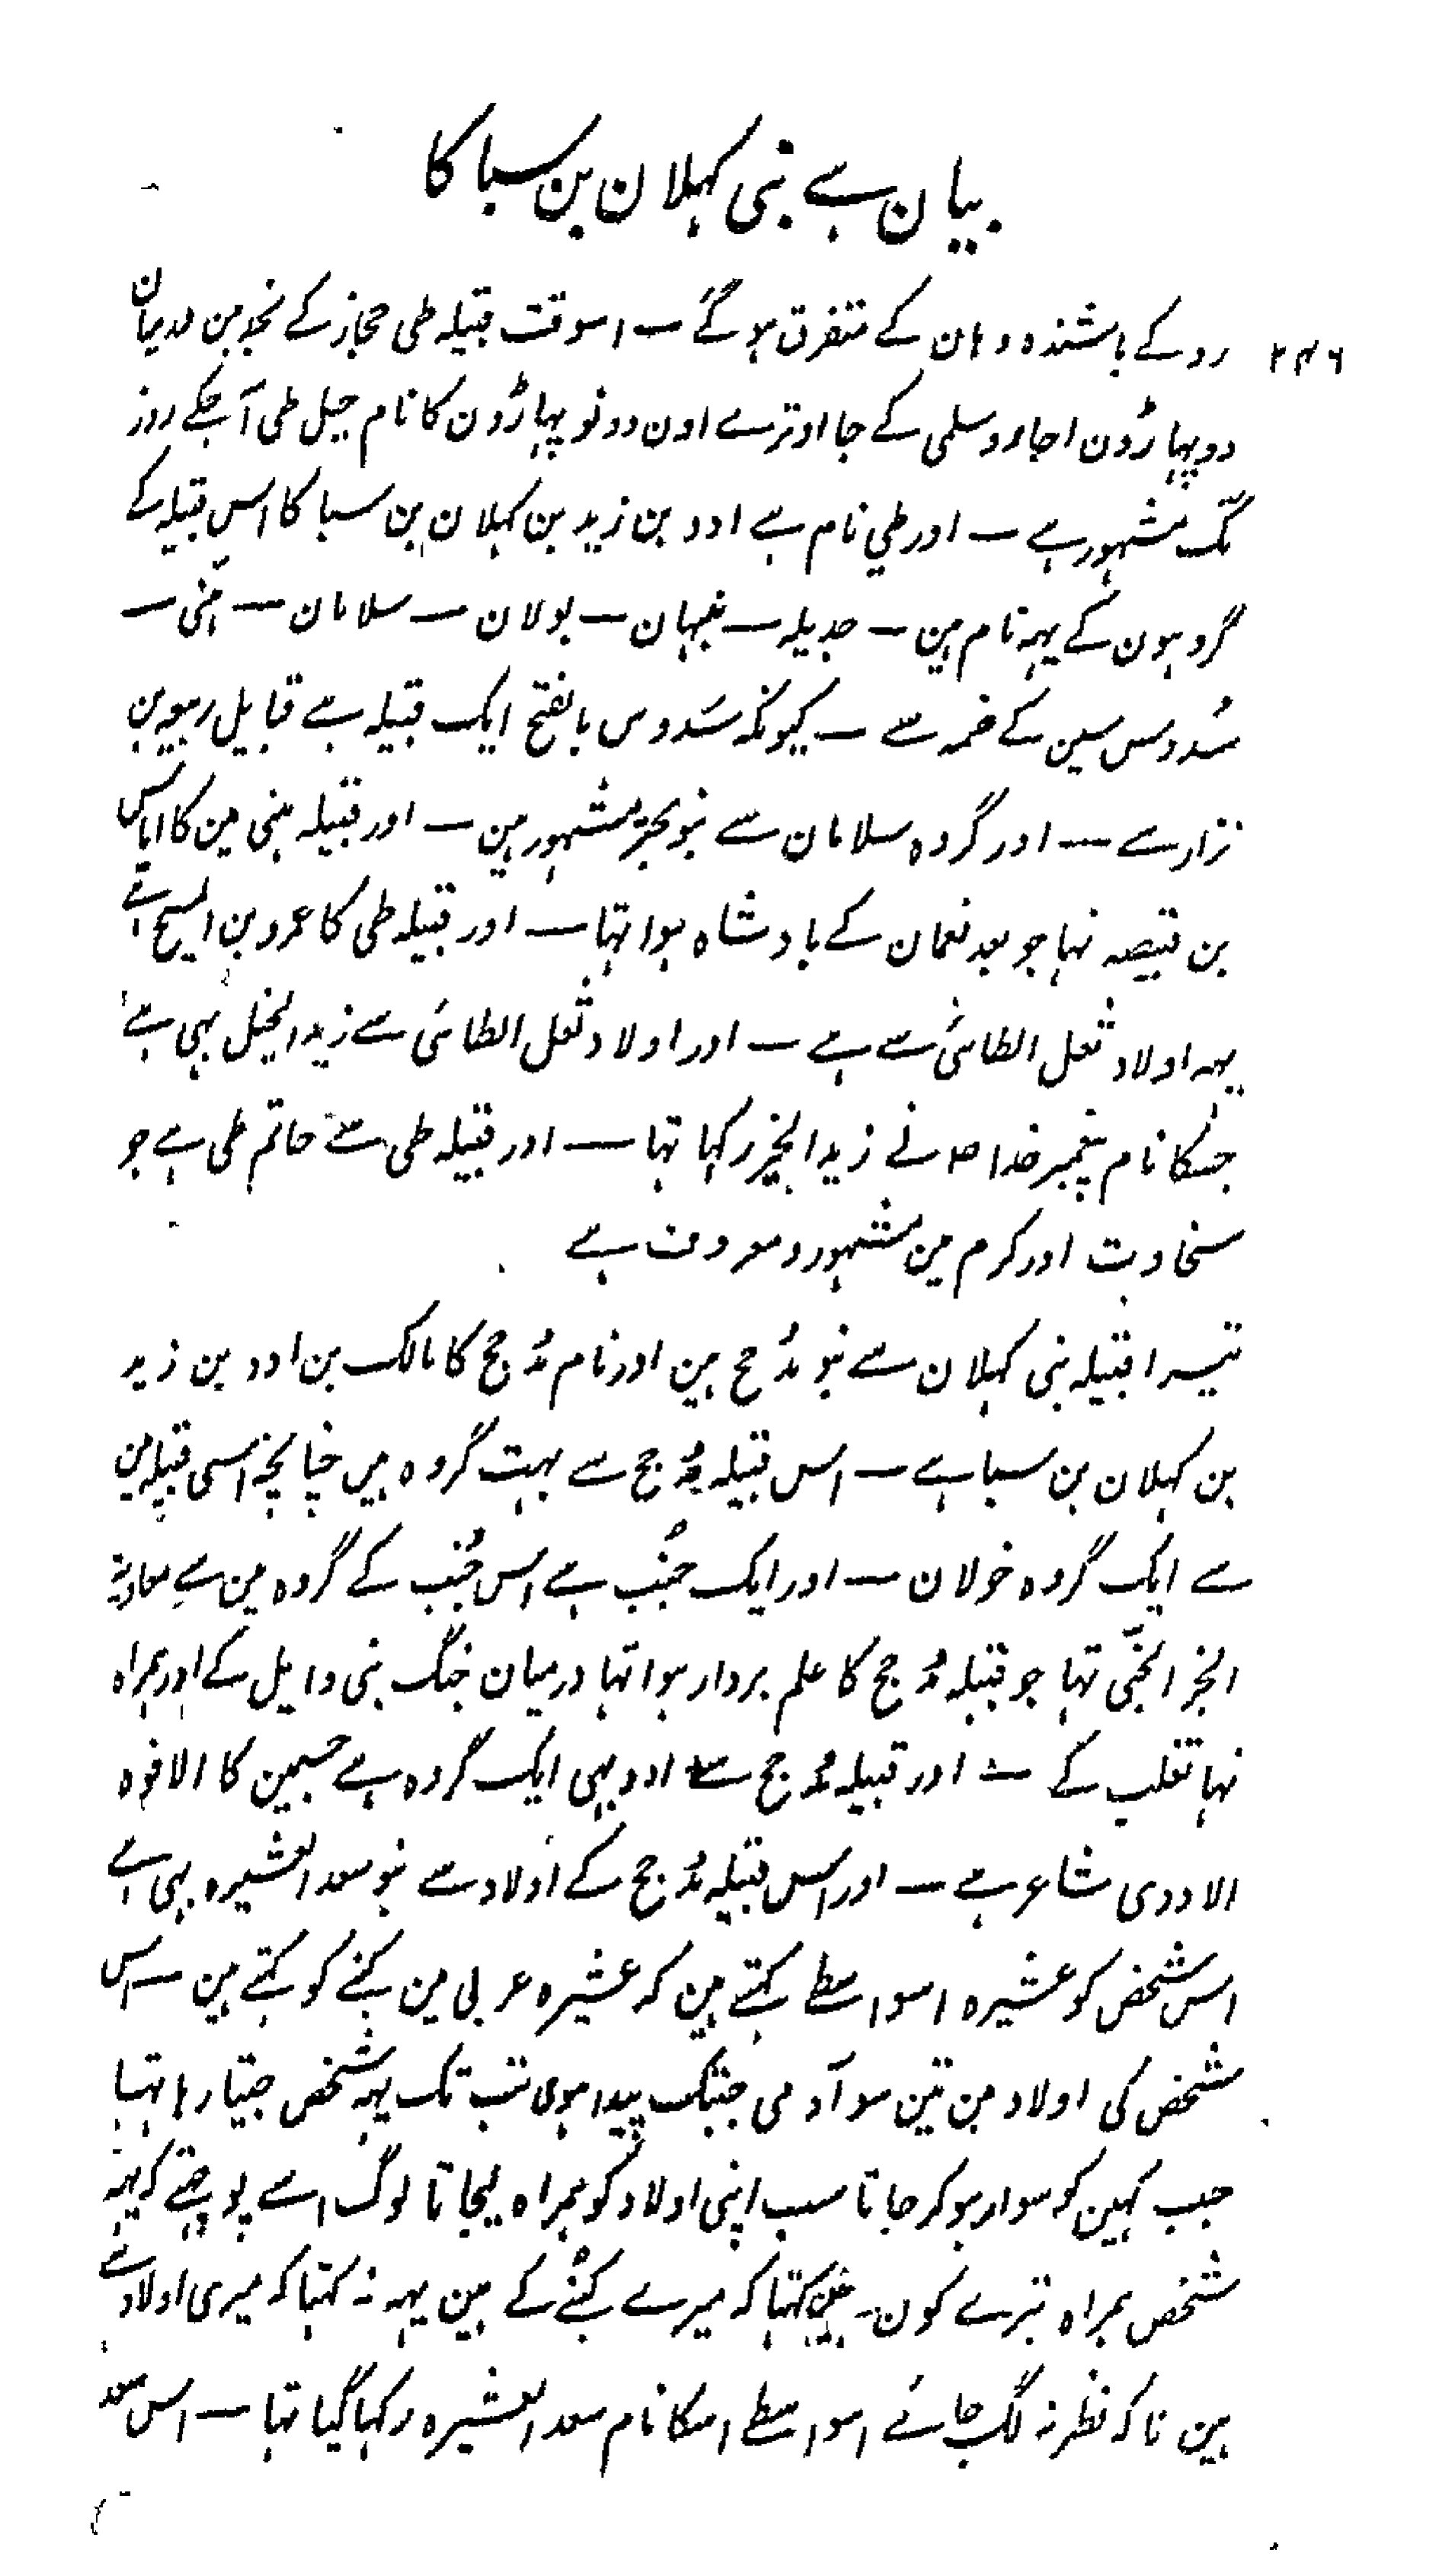 بیان ہے بنی کہلان بن سبا کا
۲۴۶
رو کے باشندہ وہان کے متفرق ہو گئے — اسوقت قبیلہ طی حجاز کے نجد مین درمیان
دو پہاڑون اجاء و سلمی کے جا اوترے اون دونو پہاڑون کا نام جبل طی آجکے روز
تک مشہور ہے — اور طی نام ہے ادد بن زید بن کہلان بن سبا کا اس قبیلہ کے
گروہون کے یہہ نام ہین — جدیلہ — نبہان — بولان — سلامان — ہنی —
سُدوس سین کے ضمہ سے — کیونکہ سَدوس بالفتح ایک قبیلہ ہے قبایل ربیعہ بن
نزار سے — اور گروہ سلامان سے بنو بحتر مشہور ہین — اور قبیلہ ہنی مین کا ایاس
بن قبیصہ تہا جو بعد نعمان کے بادشاہ ہوا تہا — اور قبیلہ طی کا عمرو بن المسیح ہے
یہہ اولاد ثعل الطائی سے ہے — اور اولاد ثعل الطائی سے زید الخیل بہی ہے
جسکا نام پیغمبر خدا صلعم نے زید الخیر رکہا تہا — اور قبیلہ طی سے حاتم طی ہے جو
سخاوت اور کرم مین مشہور و معروف ہے
تیسرا قبیلہ بنی کہلان سے بنو مذحج ہین اور نام مذحج کا مالک بن ادد بن زید
بن کہلان بن سبا ہے — اس قبیلہ مذحج سے بہت گروہ ہین چنانچہ اسی قبیلہ مین
سے ایک گروہ خولان — اور ایک جنُب ہے اس جُنب کے گروہ مین سے معاویۃ
الخیر الجنبی تہا جو قبیلہ مذحج کا علم بردار ہوا تہا درمیان جنگ بنی وایل کے اور ہمراہ
تہا تغلب کے — اور قبیلہ مذحج سے اود بہی ایک گروہ ہے جسمین کا الافوہ
الاودی شاعر ہے — اور اس قبیلہ مذحج کے اولاد سے بنو سعد العشیرہ بہی ہے
اس شخص کو عشیرہ اسواسطے کہتے ہین کہ عشیرہ عربی مین کنبے کو کہتے ہین — اس
شخص کی اولاد مین تین سو آدمی جبتک پیدا ہوی تب تک یہہ شخص جیتا رہا تہا
جب کہین کو سوار ہو کر جاتا سب اپنی اولاد کو ہمراہ لیجاتا لوگ اسے پوچہتے کہ یہہ
شخص ہمراہ تیرے کون ہین کہتا کہ میرے کنبے کے ہین یہہ نہ کہتا کہ میری اولاد سے
ہین تاکہ نظر نہ لگ جائے اسواسطے اسکا نام سعد العشیرہ رکہا گیا تہا — اس سعد